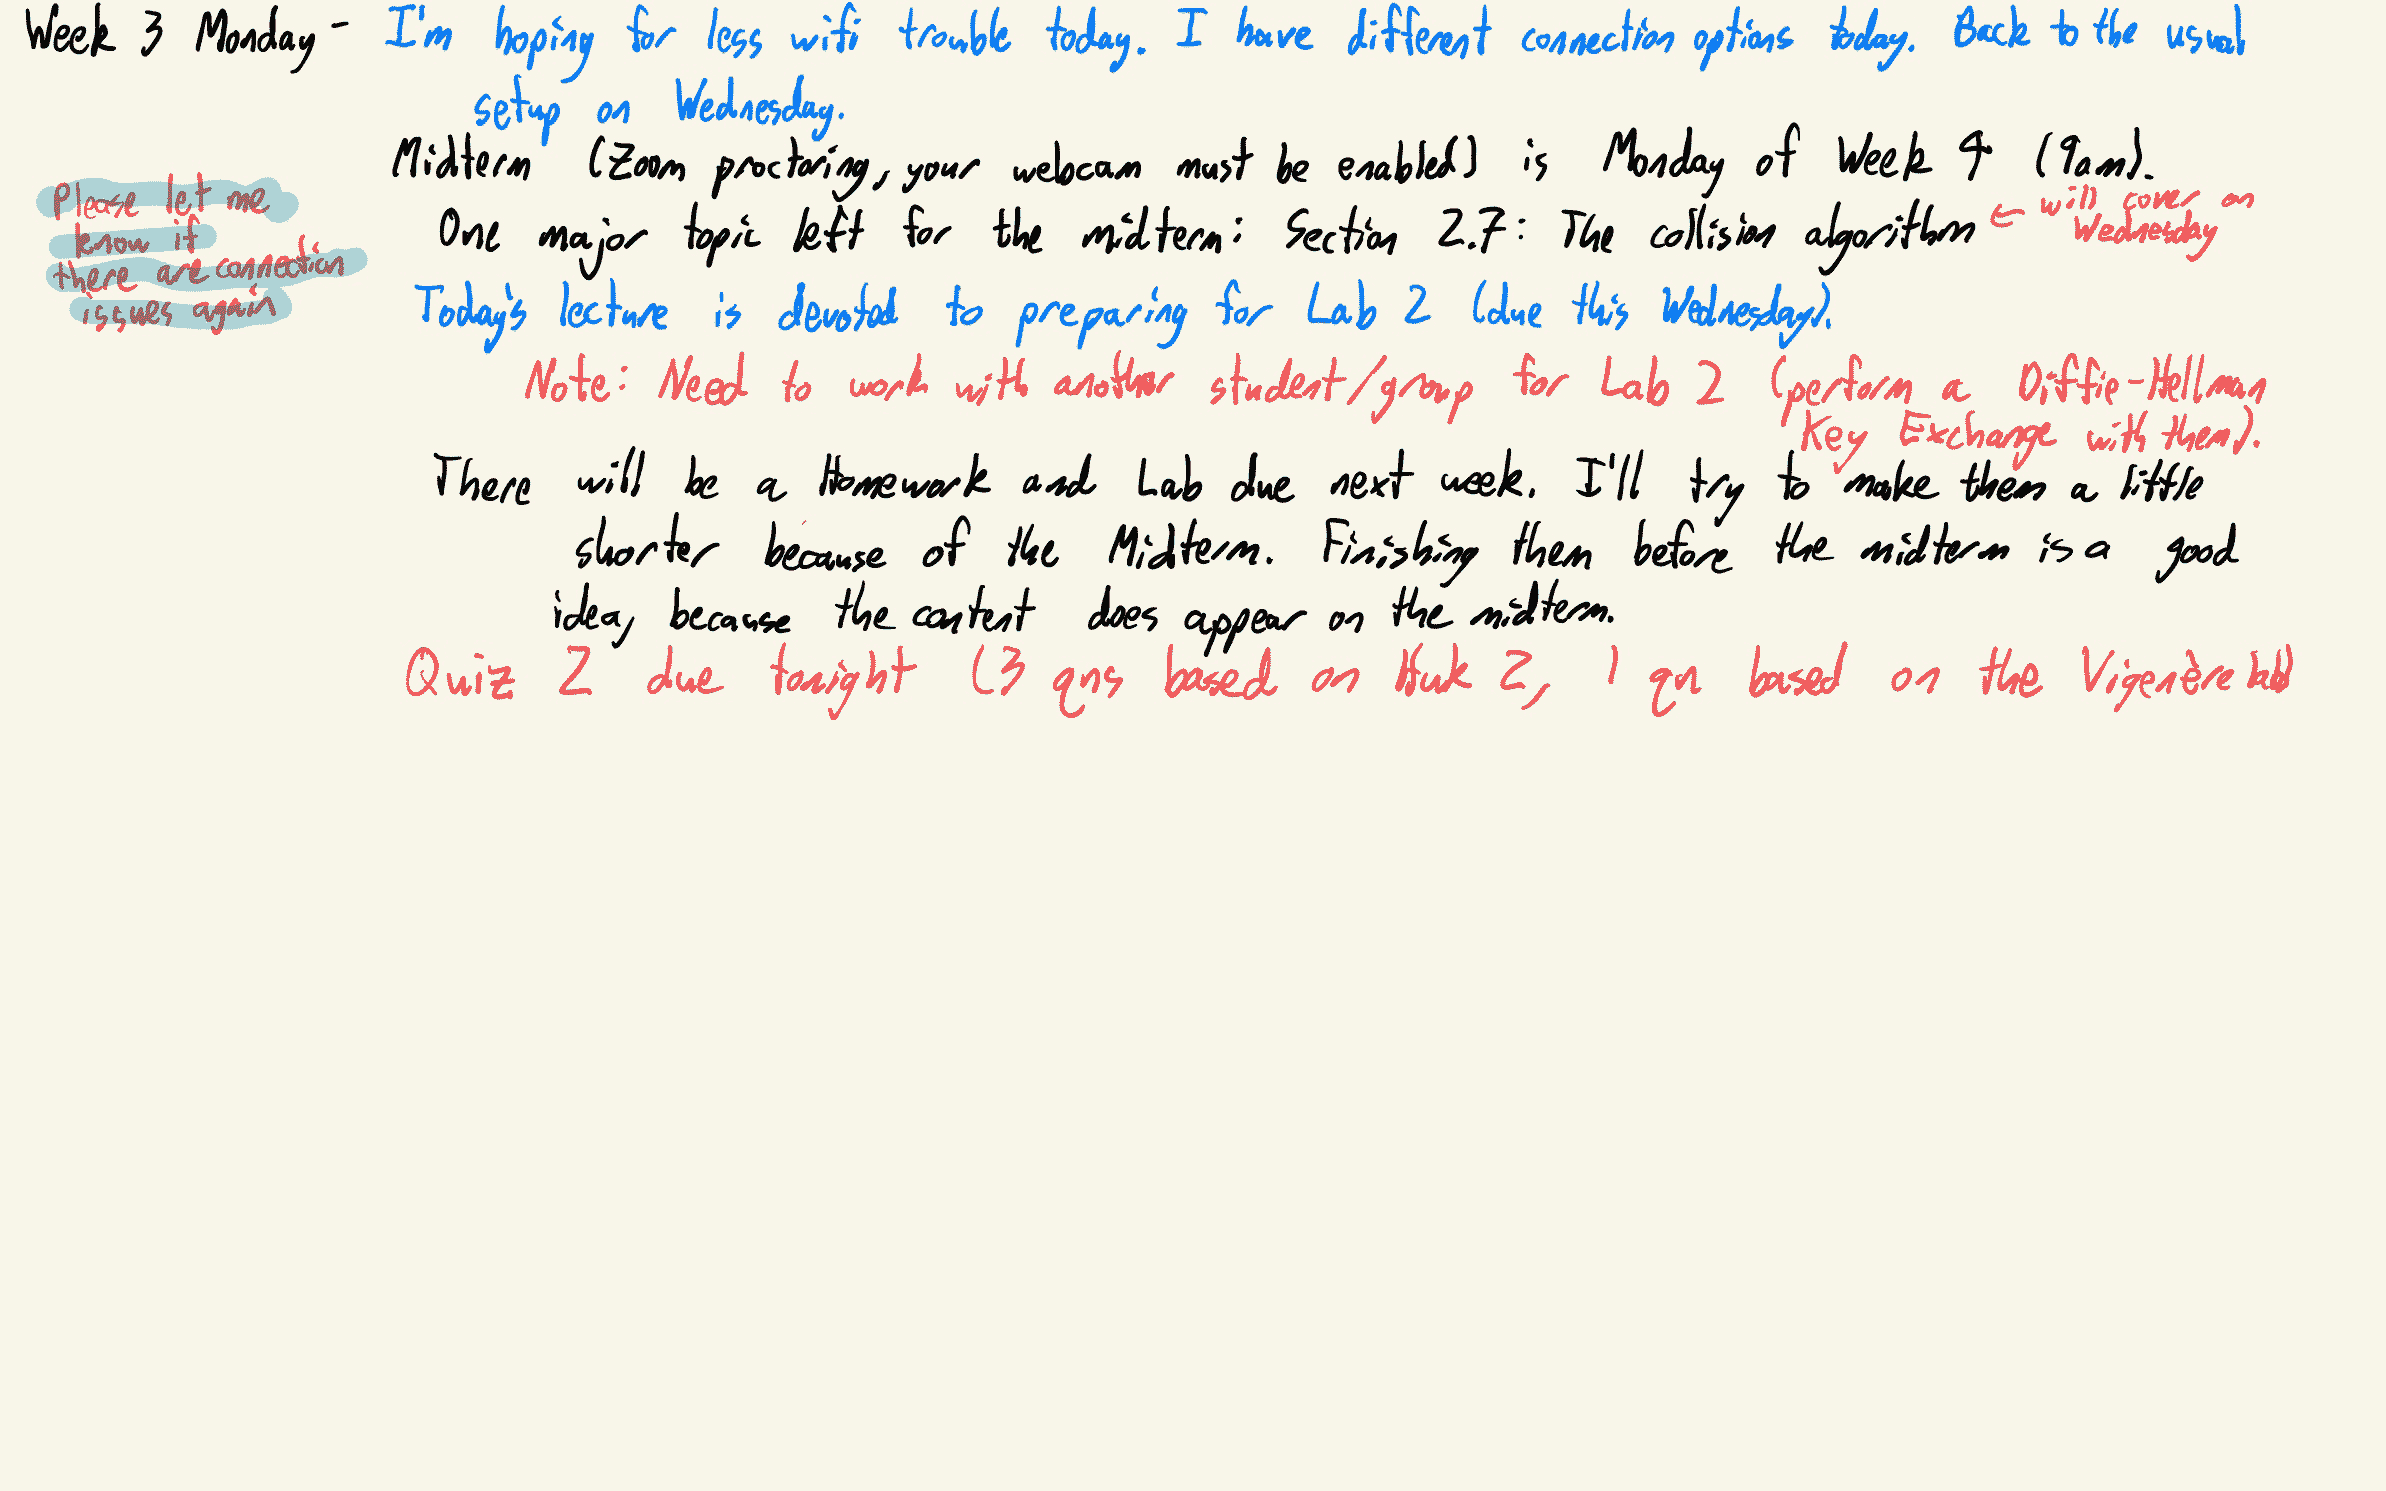 Week 3 Monday - I'm hoping for less wifi trouble today. I have different connection options today. Back to the usual
setup on Wednesday.
Midterm (Zoom proctoring, your webcam must be enabled) is Monday of Week 4 (9am).
Please let me
know if
there are connection
issues again
One major topic left for the midterm: Section 2.7: The collision algorithm ← will cover on
Wednesday
Today's lecture is devoted to preparing for Lab 2 (due this Wednesday).
Note: Need to work with another student/group for Lab 2 (perform a Diffie-Hellman
Key Exchange with them).
There will be a Homework and Lab due next week. I'll try to make them a little
shorter because of the Midterm. Finishing them before the midterm is a good
idea, because the content does appear on the midterm.
Quiz 2 due tonight (3 qns based on Hwk 2, 1 qn based on the Vigenère lab)